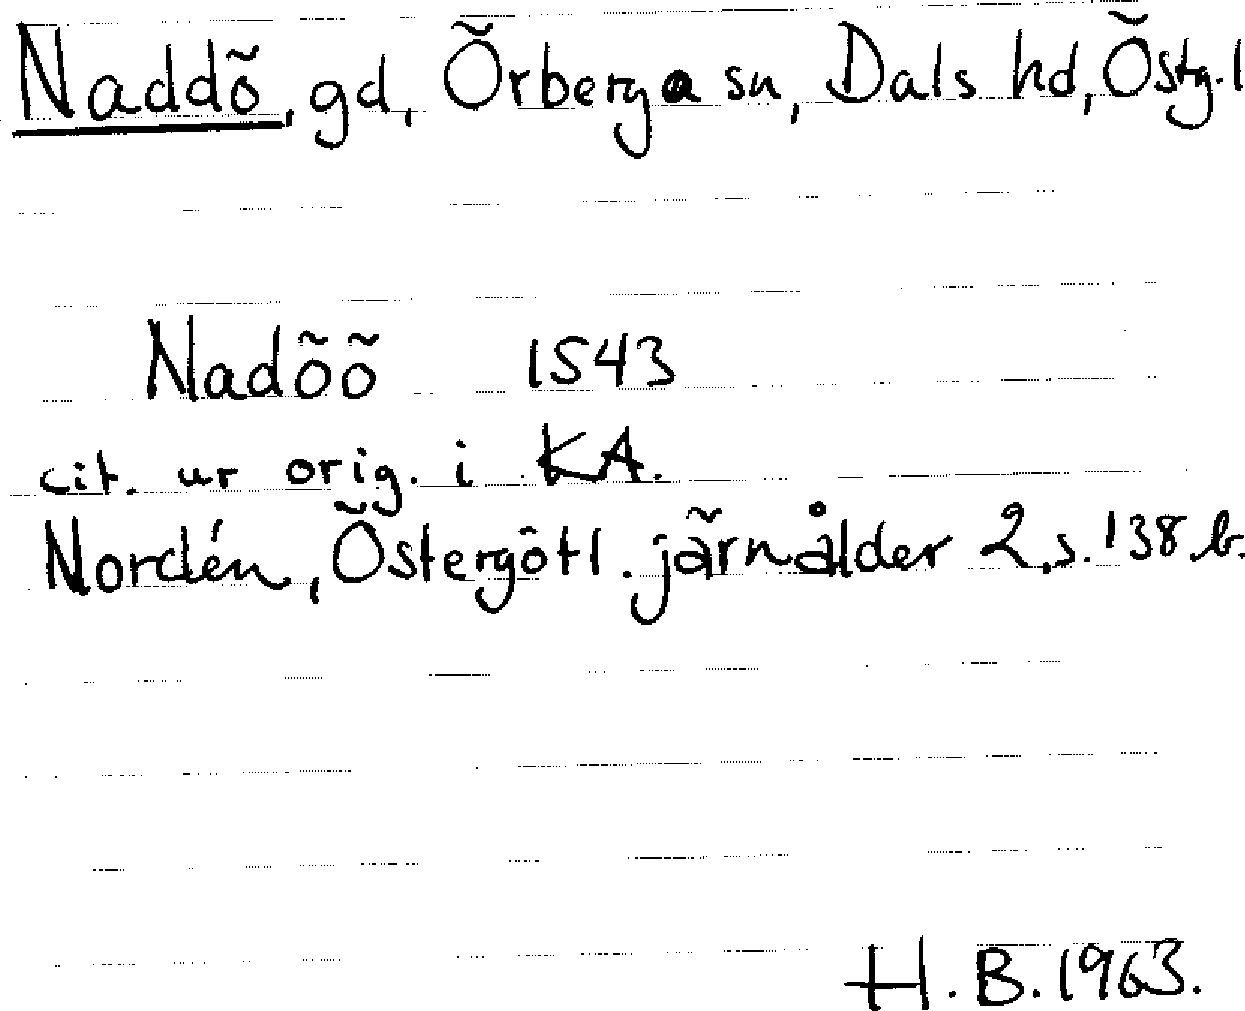 Naddö, gd, Örberga sn, Dals hd, Östg.l
Nadöö 1543
cit. ur orig. i KA.
Nordén, Östergötl. järnålder 2, s. 138 b.
H. B. 1963.